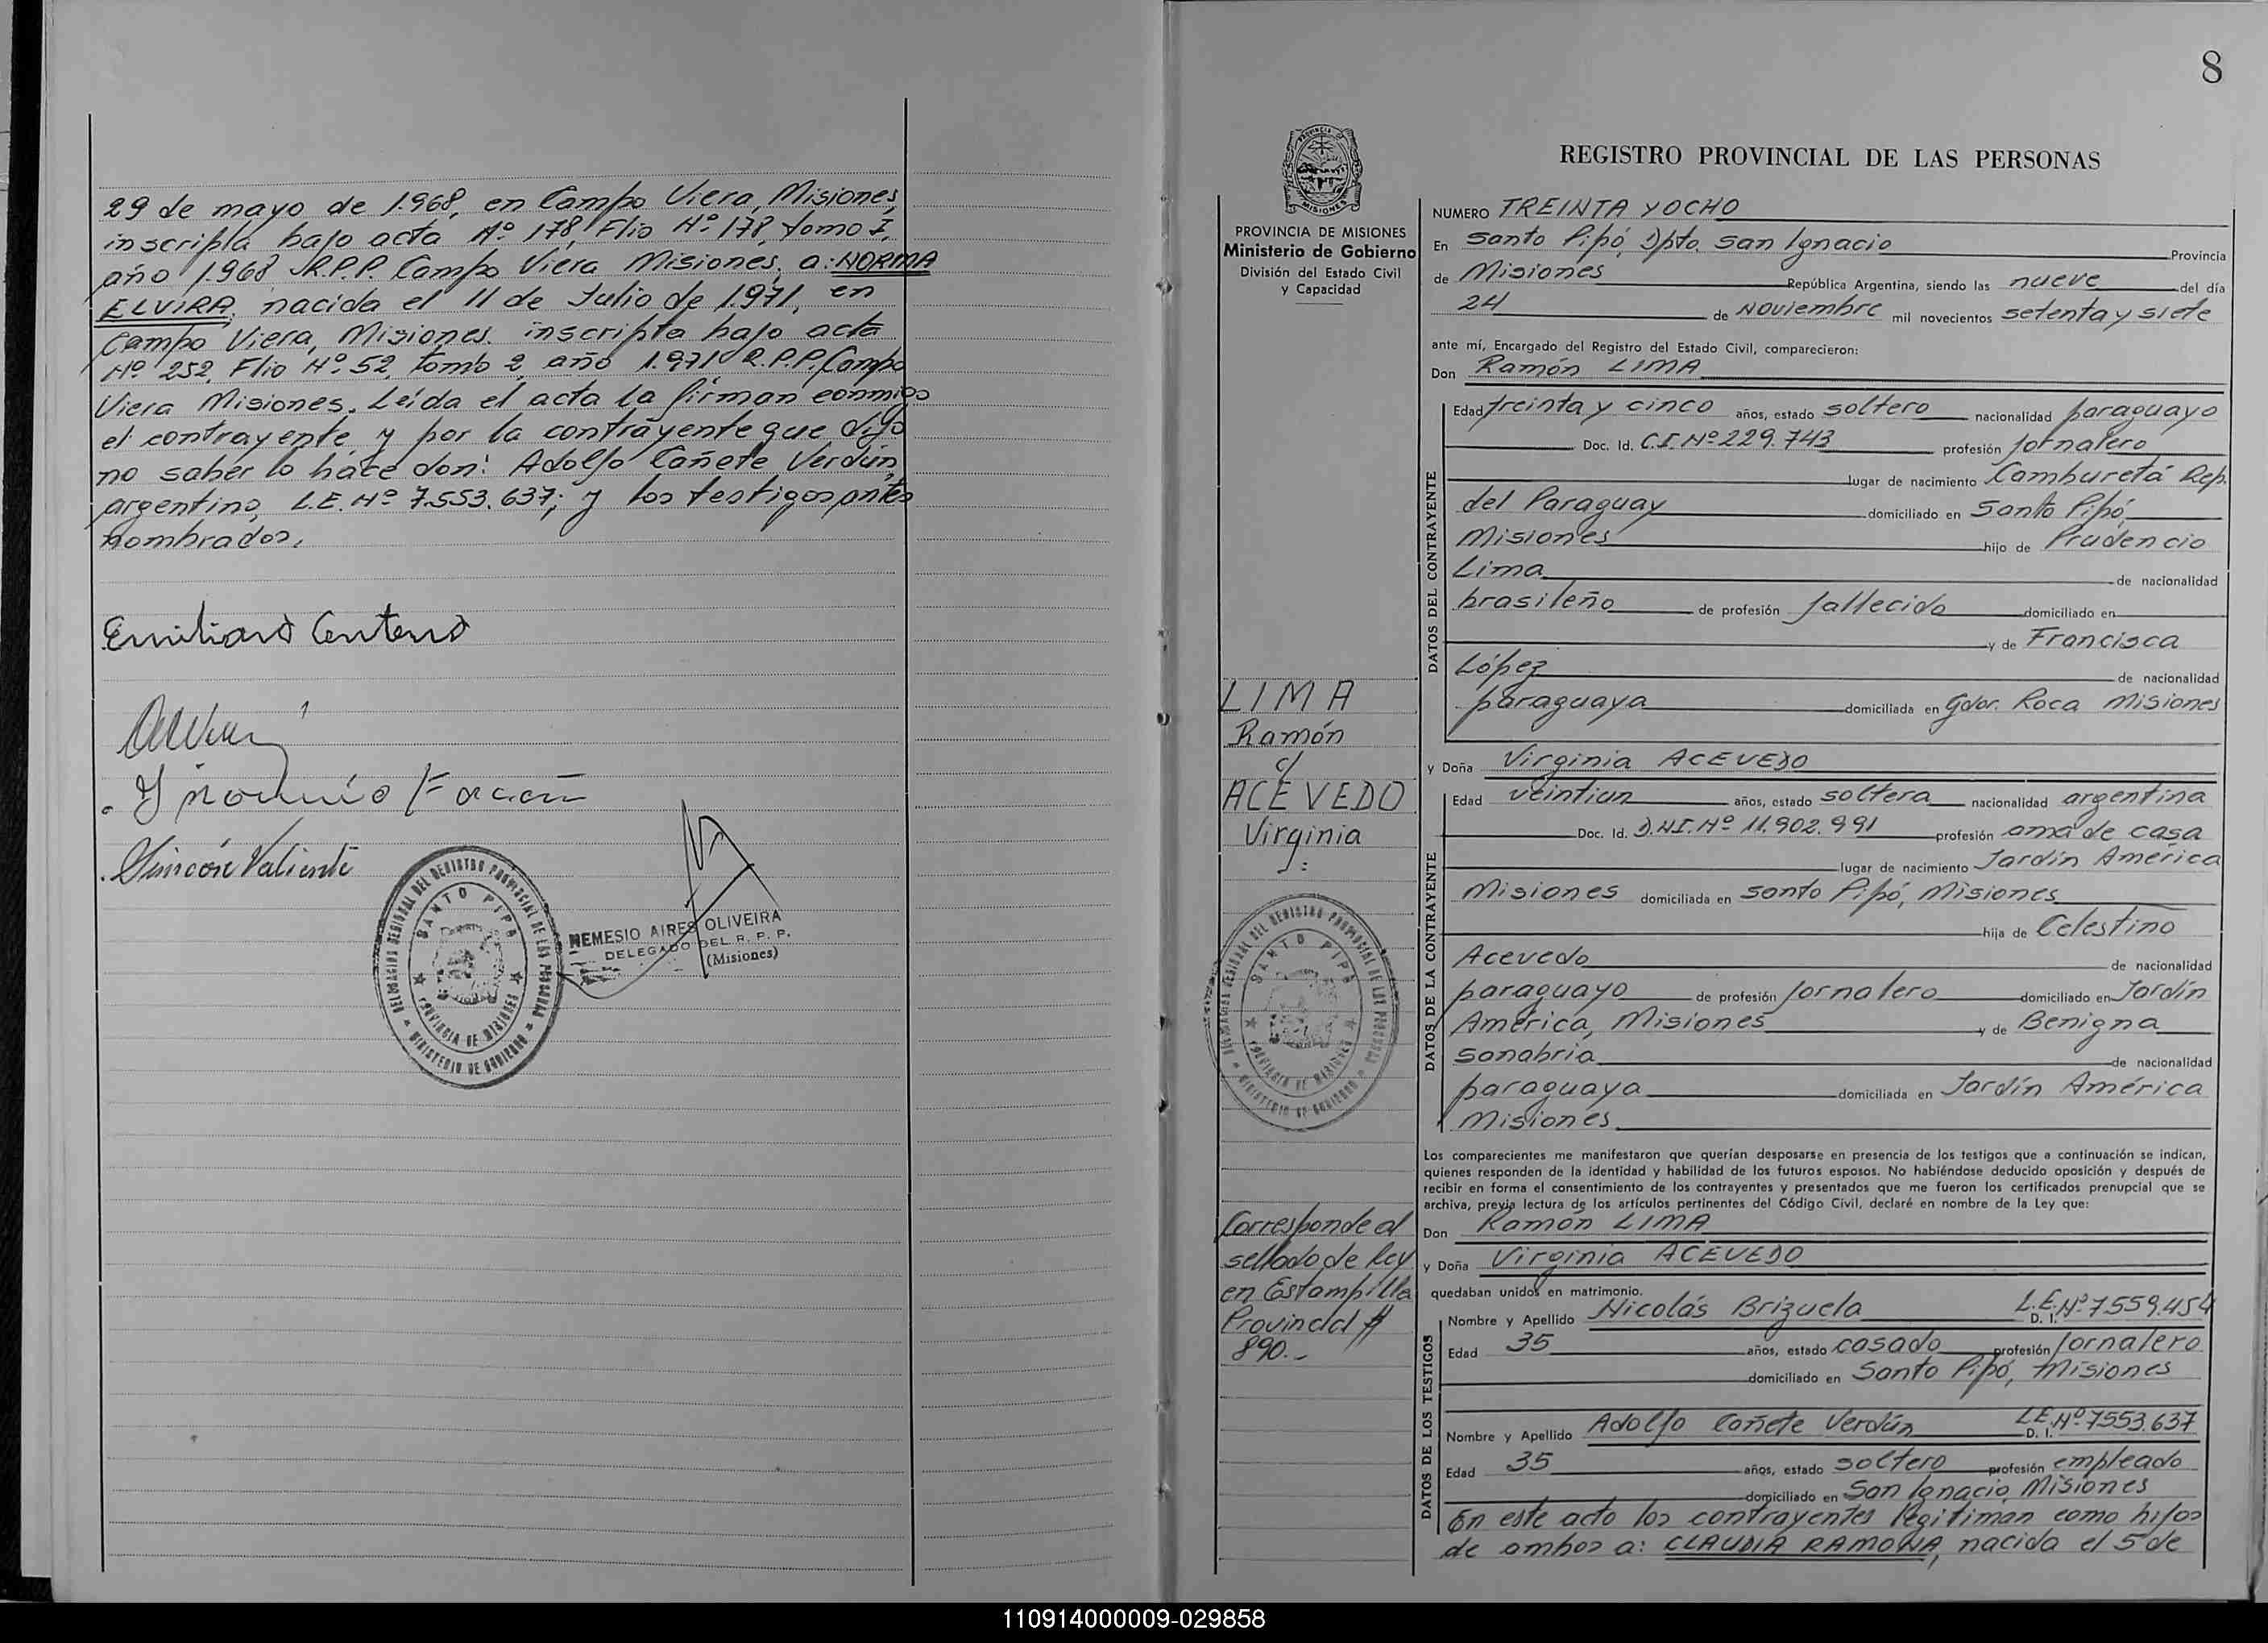 29 de mayo de 1.968, en Campo Viera, Misiones,
inscripta bajo acta Nº 178, Flio Nº 178, tomo I,
año 1.968 R.P.P. Campo Viera Misiones. a: NORMA
ELVIRA, nacida el 11 de Julio de 1.971, en
Campo Viera, Misiones. inscripta bajo acta
Nº 252, Flio Nº 52, tomo 2, año 1.971 R.P.P. Campo
Viera Misiones. Leída el acta la firman conmigo
el contrayente y por la contrayente que dijo
no saber lo hace don: Adolfo Cañete Verdún,
argentino, L.E. Nº 7.553.637; y los testigos antes
nombrados.
Emiliano Centeno
Simeón Valiente
DELEGACION REGIONAL DEL REGISTRO PROVINCIAL DE LAS PERSONAS
SANTO PIPA
PROVINCIA DE MISIONES
MINISTERIO DE GOBIERNO
NEMESIO AIRES OLIVEIRA
DELEGADO DEL R. P. P.
(Misiones)
8
PROVINCIA DE MISIONES
Ministerio de Gobierno
División del Estado Civil
y Capacidad
LIMA
Ramón
c/
ACEVEDO
Virginia
DELEGACION REGIONAL DEL REGISTRO PROVINCIAL DE LAS PERSONAS
SANTO PIPA
PROVINCIA DE MISIONES
MINISTERIO DE GOBIERNO
Corresponde al
sellado de ley
en Estampilla
Provincial $
890.-
REGISTRO PROVINCIAL DE LAS PERSONAS
NUMERO TREINTA Y OCHO
En Santo Pipó, Dpto. San Ignacio Provincia
de Misiones República Argentina, siendo las nueve del día
24 de Noviembre mil novecientos setenta y siete
ante mí, Encargado del Registro del Estado Civil, comparecieron:
Don Ramón LIMA
DATOS DEL CONTRAYENTE
Edad treinta y cinco años, estado soltero nacionalidad paraguayo
Doc. Id. C.I. Nº 229.743 profesión jornalero
lugar de nacimiento Camburetá Rep.
del Paraguay domiciliado en Santo Pipó,
Misiones hijo de Prudencio
Lima de nacionalidad
brasileño de profesión fallecido domiciliado en
y de Francisca
López de nacionalidad
paraguaya domiciliada en Gdor. Roca Misiones
y Doña Virginia ACEVEDO
DATOS DE LA CONTRAYENTE
Edad veintiun años, estado soltera nacionalidad argentina
Doc. Id. D.N.I. Nº 11.902.991 profesión ama de casa
lugar de nacimiento Jardín América
Misiones domiciliada en Santo Pipó, Misiones
hija de Celestino
Acevedo de nacionalidad
paraguayo de profesión jornalero domiciliado en Jardín
América, Misiones y de Benigna
Sanabria de nacionalidad
paraguaya domiciliada en Jardín América
Misiones.
Los comparecientes me manifestaron que querían desposarse en presencia de los testigos que a continuación se indican,
quienes responden de la identidad y habilidad de los futuros esposos. No habiéndose deducido oposición y después de
recibir en forma el consentimiento de los contrayentes y presentados que me fueron los certificados prenupcial que se
archiva, previa lectura de los artículos pertinentes del Código Civil, declaré en nombre de la Ley que:
Don Ramón LIMA
y Doña Virginia ACEVEDO
quedaban unidos en matrimonio.
DATOS DE LOS TESTIGOS
Nombre y Apellido Nicolás Brizuela D. I. L.E. Nº 7.559.454
Edad 35 años, estado casado profesión jornalero
domiciliado en Santo Pipó, Misiones
Nombre y Apellido Adolfo Cañete Verdún D. I. L.E. Nº 7553.637
Edad 35 años, estado soltero profesión empleado
domiciliado en San Ignacio, Misiones
En este acto los contrayentes legitiman como hijos
de ambos a: CLAUDIA RAMONA, nacida el 5 de
110914000009-029858